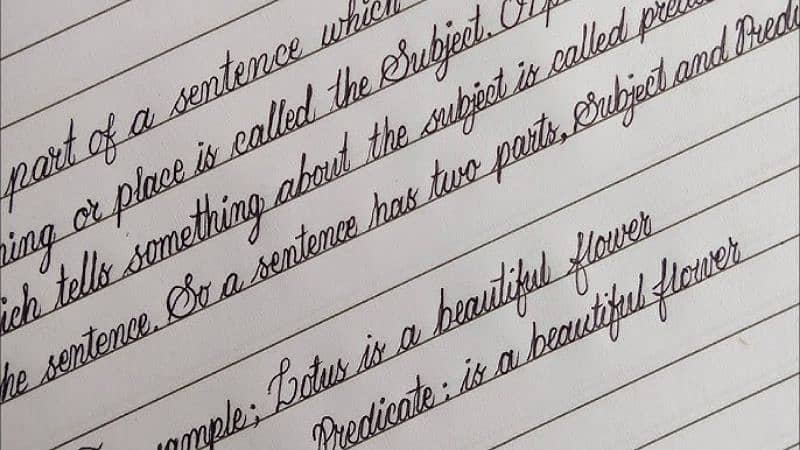 part of a sentence which
or place is called the Subject.
tells something about the subject is called
sentence. So a sentence has two parts, Subject and
Lotus is a beautiful flower
Predicate: is a beautiful flower